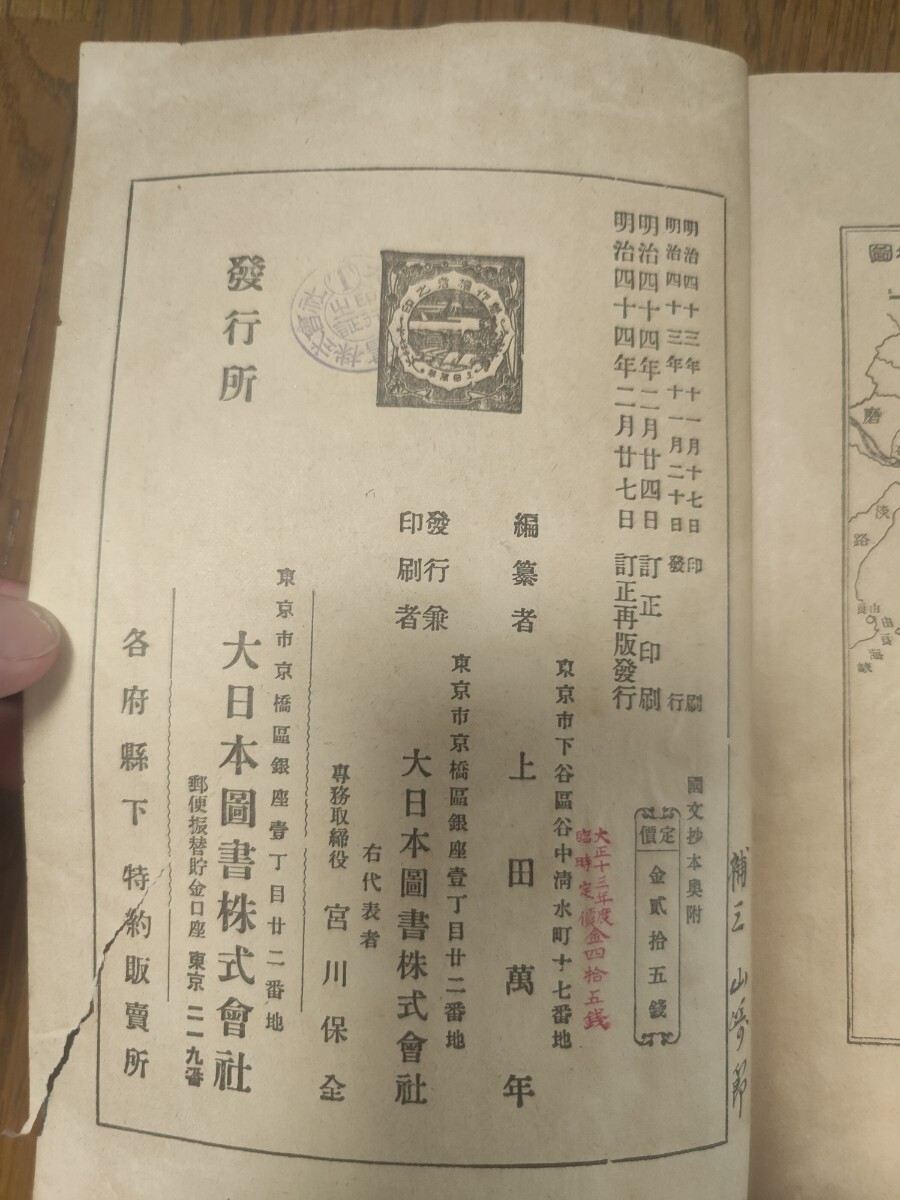 明治四十三年十一月十七日印刷
明治四十三年十一月二十日發行
明治四十四年二月廿四日訂正印刷
明治四十四年二月廿七日訂正再版發行
國文抄本奧附
定價
金貳拾五錢
大正十三年度
臨時定價金四拾五錢
東京市下谷區谷中淸水町十七番地
編纂者
上田萬年
東京市京橋區銀座壹丁目廿二番地
發行兼
印刷者
大日本圖書株式會社
右代表者
專務取締役
宮川保全
發行所
東京市京橋區銀座壹丁目廿二番地
大日本圖書株式會社
郵便振替貯金口座 東京二一九番
各府縣下 特約販賣所
著作權之印
圖
磨
淡
路